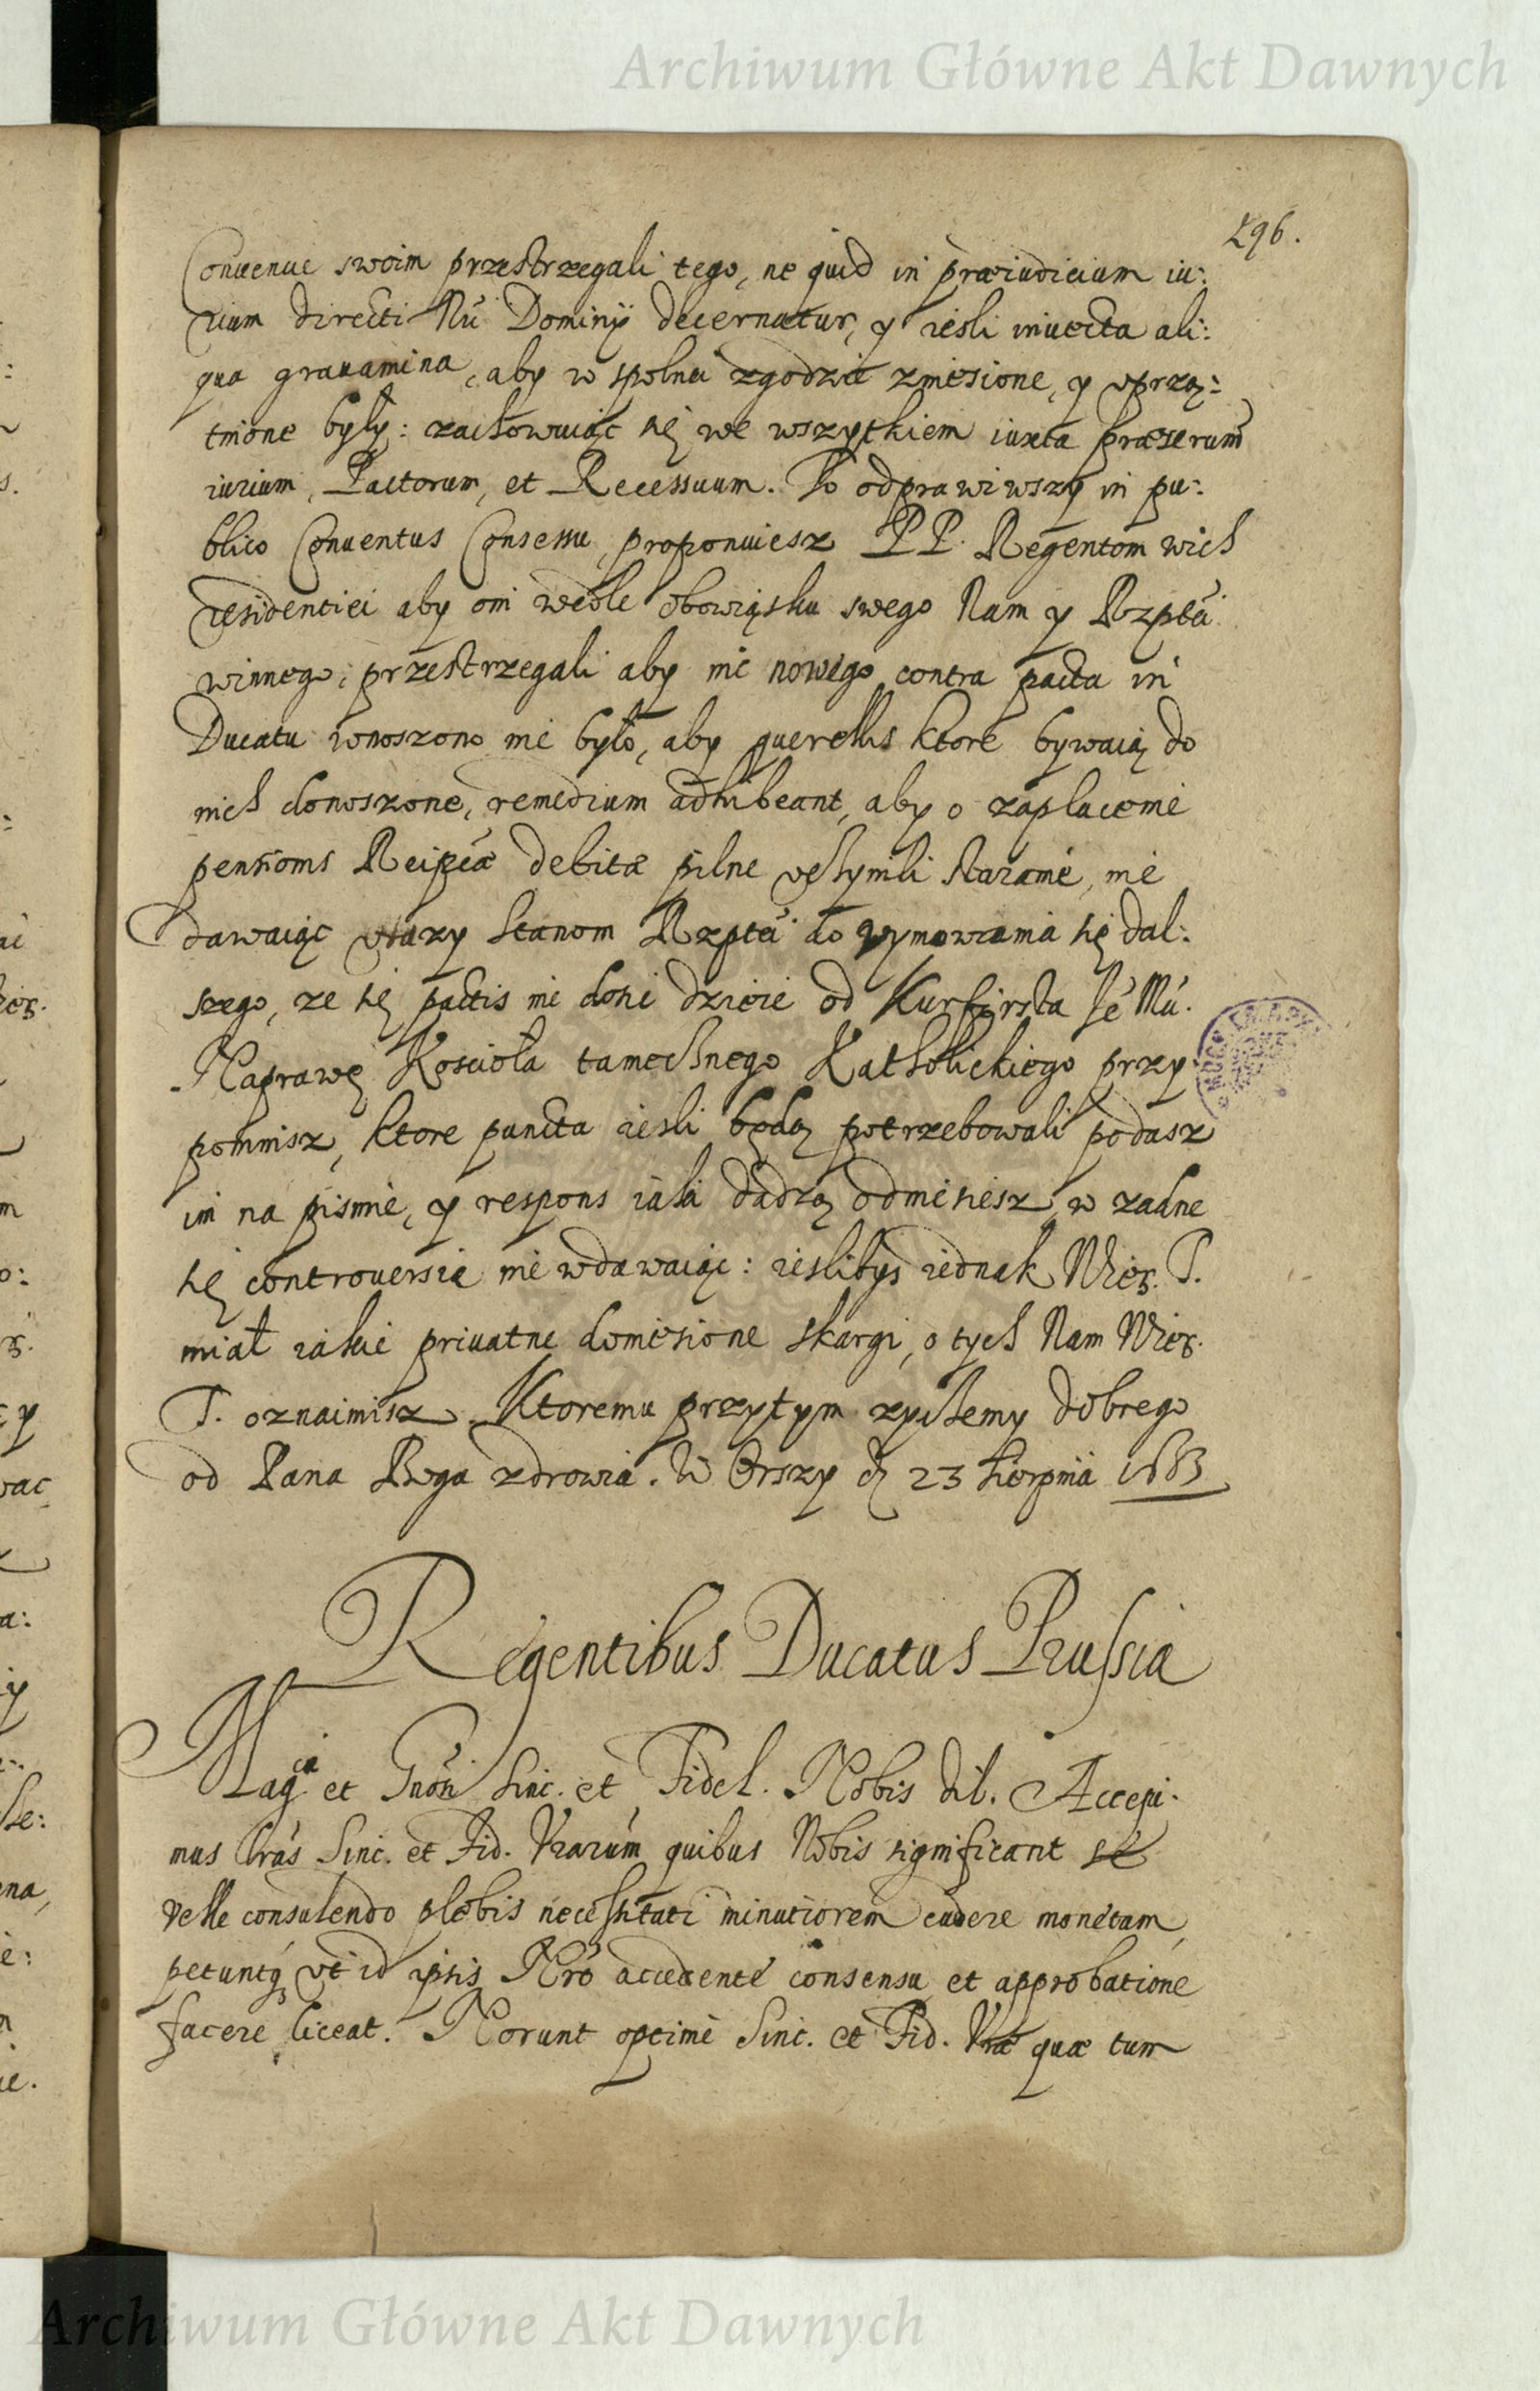 Archiwum Główne Akt Dawnych
296.
Conuenue swoim przestrzegali tego, ne quid in præiudicium iu:
rium directi Nri Dominij decernatur, y iesli inuecta ali:
qua grauamina, aby w spolnei zgodzie zniesione, y vprzą:
tnione były: zachowuiąc się we wszytkiem iuxta præscrium
iurium, Pactorum, et Recessuum. To odprawiwszy in pu:
blico Conuentus Consessu, proponuiesz PP. Regentom wich
residentiei aby oni wedle obowiąsku swego Nam y Rzptéi
winnego, przestrzegali aby nic nowego contra pacta in
Ducatu wnoszono nie było, aby querellis ktore bywaią do
nich donoszone, remedium adhibeant, aby o zapłacenie
pensionis Reipcæ debitæ pilne vczynili staranie, nie
dawaiąc vrazy Stanom Rzptéi do wymowiania się dal:
szego, ze się pactis nie dosić dzieie od Kurfirsta Je Mći.
Naprawę Koscioła tamechnego Katholickiego przy
pomnisz, ktore puncta iesli będą potrzebowali podasz
im na pismie, y respons iaki dadzą odniesiesz, w zadne
się controuersie nie wdawaiąc: iesliбys iednak Wier. T.
miał iakie priuatne doniesione skargi, o tych Nam Wier.
T. oznaimisz. Ktoremu przytym zyczemy dobrego
od Pana Boga zdrowia. W Orszy d 23 Sierpnia 1633
Regentibus Ducatus Prussiæ
Magci et Gnosi Sinc. et Fidel. Nobis dil. Accepi:
mus Lras Sinc. et Fid. Vrarum quibus Nobis significant se
velle consulendo plebis necessitati minutiorem cudere monetam,
petuntq vt id ipsis Nro accedente consensu et approbatione
facere liceat. Norunt optime Sinc. et Fid. Vræ quæ tum
Archiwum Główne Akt Dawnych